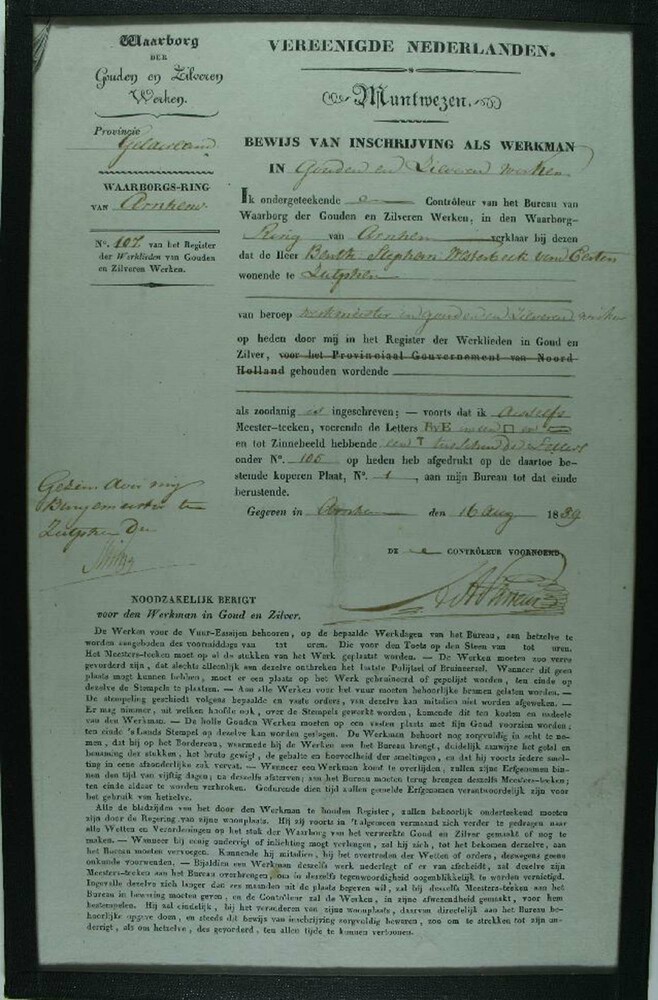 Waarborg
DER
Gouden en Zilveren
Werken.
Provincie
Gelderland
WAARBORGS-RING
VAN Arnhem
N°. 107. van het Register
der Werklieden van Gouden
en Zilveren Werken.
VEREENIGDE NEDERLANDEN.
Muntwezen.
BEWIJS VAN INSCHRIJVING ALS WERKMAN
IN Gouden en Zilveren werken
Ik ondergeteekende Contrôleur van het Bureau van
Waarborg der Gouden en Zilveren Werken, in den Waarborg-
Ring van Arnhem verklaar bij dezen
dat de Heer Stephen van
wonende te Zutphen
van beroep werkmeester in gouden en zilveren werken
op heden door mij in het Register der Werklieden in Goud en
Zilver, voor het Provinciaal Gouvernement van Noord
Holland gehouden wordende
als zoodanig is ingeschreven; — voorts dat ik deszelfs
Meester-teeken, voerende de Letters BvE in een
en tot Zinnebeeld hebbende een T tusschen de Letters
onder N°. 105 op heden heb afgedrukt op de daartoe be-
stemde koperen Plaat, N°. 1, aan mijn Bureau tot dat einde
berustende.
Gegeven in Arnhem den 16 Aug 1839
DE CONTRÔLEUR VOORNOEMD
Gezien door mij
Burgemeester te
Zutphen
NOODZAKELIJK BERIGT
voor den Werkman in Goud en Zilver.
De Werken voor de Vuur-Essaijen behooren, op de bepaalde Werkdagen van het Bureau, aan hetzelve te
worden aangeboden des voormiddags van tot uren. Die voor den Toets op den Steen van tot uren.
Het Meesters-teeken moet op al de stukken van het Werk geplaatst worden. — De Werken moeten zoo verre
gevorderd zijn, dat slechts alleenlijk aan dezelve ontbreken het laatste Polijtsel of Bruineersel. Wanneer dit geen
plaats mogt kunnen hebben, moet er een plaats op het Werk gebruineerd of gepolijst worden, ten einde op
dezelve de Stempels te plaatsen. — Aan alle Werken voor het vuur moeten behoorlijke bramen gelaten worden. —
De stempeling geschiedt volgens bepaalde en vaste orders, van dezelve kan mitsdien niet worden afgeweken. —
Er mag nimmer, uit welken hoofde ook, over de Stempels gewerkt worden, komende dit ten kosten en nadeele
van den Werkman. — De holle Gouden Werken moeten op een vasten plaats met fijn Goud voorzien worden;
ten einde 's Lands Stempel op dezelve kan worden geslagen. De Werkman behoort nog zorgvuldig in acht te ne-
men, dat hij op het Bordereau, waarmede hij de Werken aan het Bureau brengt, duidelijk aanwijze het getal en
benaming der stukken, het bruto gewigt, de gehalte en hoeveelheid der smeltingen, en dat hij voorts iedere smel-
ting in eene afzonderlijke zak vervat. — Wanneer een Werkman komt te overlijden, zullen zijne Erfgenamen bin-
nen den tijd van vijftig dagen, na deszelfs afsterven, aan het Bureau moeten terug brengen deszelfs Meesters-teeken;
ten einde aldaar te worden verbroken. Gedurende dien tijd zullen gemelde Erfgenamen verantwoordelijk zijn voor
het gebruik van hetzelve.
Alle de bladzijden van het door den Werkman te houden Register, zullen behoorlijk onderteekend moeten
zijn door de Regering van zijne woonplaats. Hij zij voorts in 't algemeen vermaand zich verder te gedragen naar
alle Wetten en Verordeningen op het stuk der Waarborg van het verwerkte Goud en Zilver gemaakt of nog te
maken. — Wanneer hij eenig onderrigt of inlichting mogt verlangen, zal hij zich, tot het bekomen derzelve, aan
het Bureau moeten vervoegen. Kunnende hij mitsdien, bij het overtreden der Wetten of orders, deswegens geene
onkunde voorwenden. — Bijaldien een Werkman deszelfs werk nederlegt of er van afscheidt, zal dezelve zijn
Meesters-teeken aan het Bureau overbrengen, om in deszelfs tegenwoordigheid oogenblikkelijk te worden vernietigd.
Ingevalle dezelve zich langer dan zes maanden uit de plaats begeven wil, zal hij deszelfs Meesters-teeken aan het
Bureau in bewaring moeten geven, en de Contrôleur zal de Werken, in zijne afwezendheid gemaakt, voor hem
bestempelen. Hij zal eindelijk, bij het veranderen van zijne woonplaats, daarvan directelijk aan het Bureau be-
hoorlijke opgave doen, en steeds dit bewijs van inschrijving zorgvuldig bewaren, zoo om te strekken tot zijn on-
derrigt, als om hetzelve, des gevorderd, ten allen tijde te kunnen vertoonen.